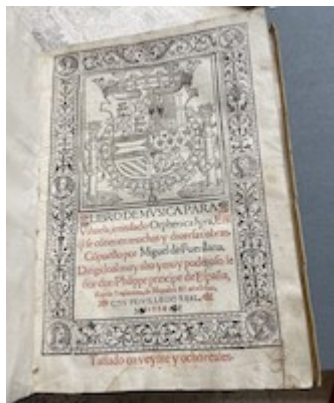 LIBRO DE MVSICA PARA
Vihuela, intitulado Orphenica lyra. En
el q̃l se cõtienen muchas y diuersas obras.
Cõpuesto por Miguel de Fuenllana.
Dirigido al muy alto y muy poderoso se
ñor don Philippe principe de España,
CON PRIVILEGIO REAL.
1554
Tassado en veynte y ocho reales